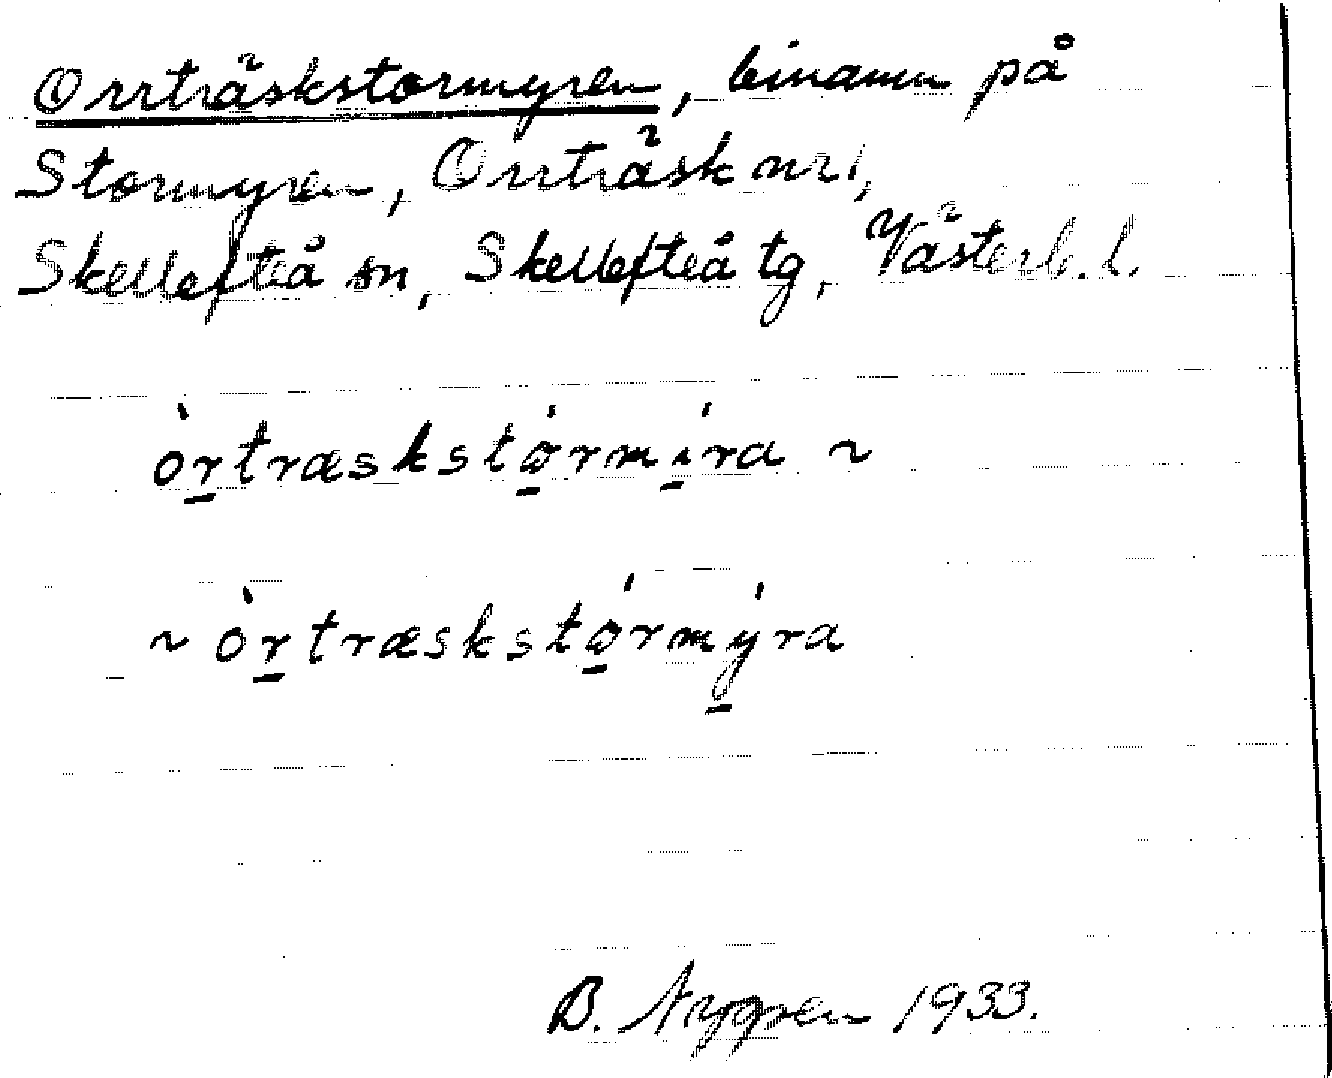 Orrträskstormyren, binamn på
Stormyren, Orrträsk nr 1,
Skellefteå sn, Skellefteå tg, Västerb. l.
òr̲træskstǿ̲rmí̲ra ~
~ òr̲træskstǿ̲rmý̲ra
B. Nygren 1933.